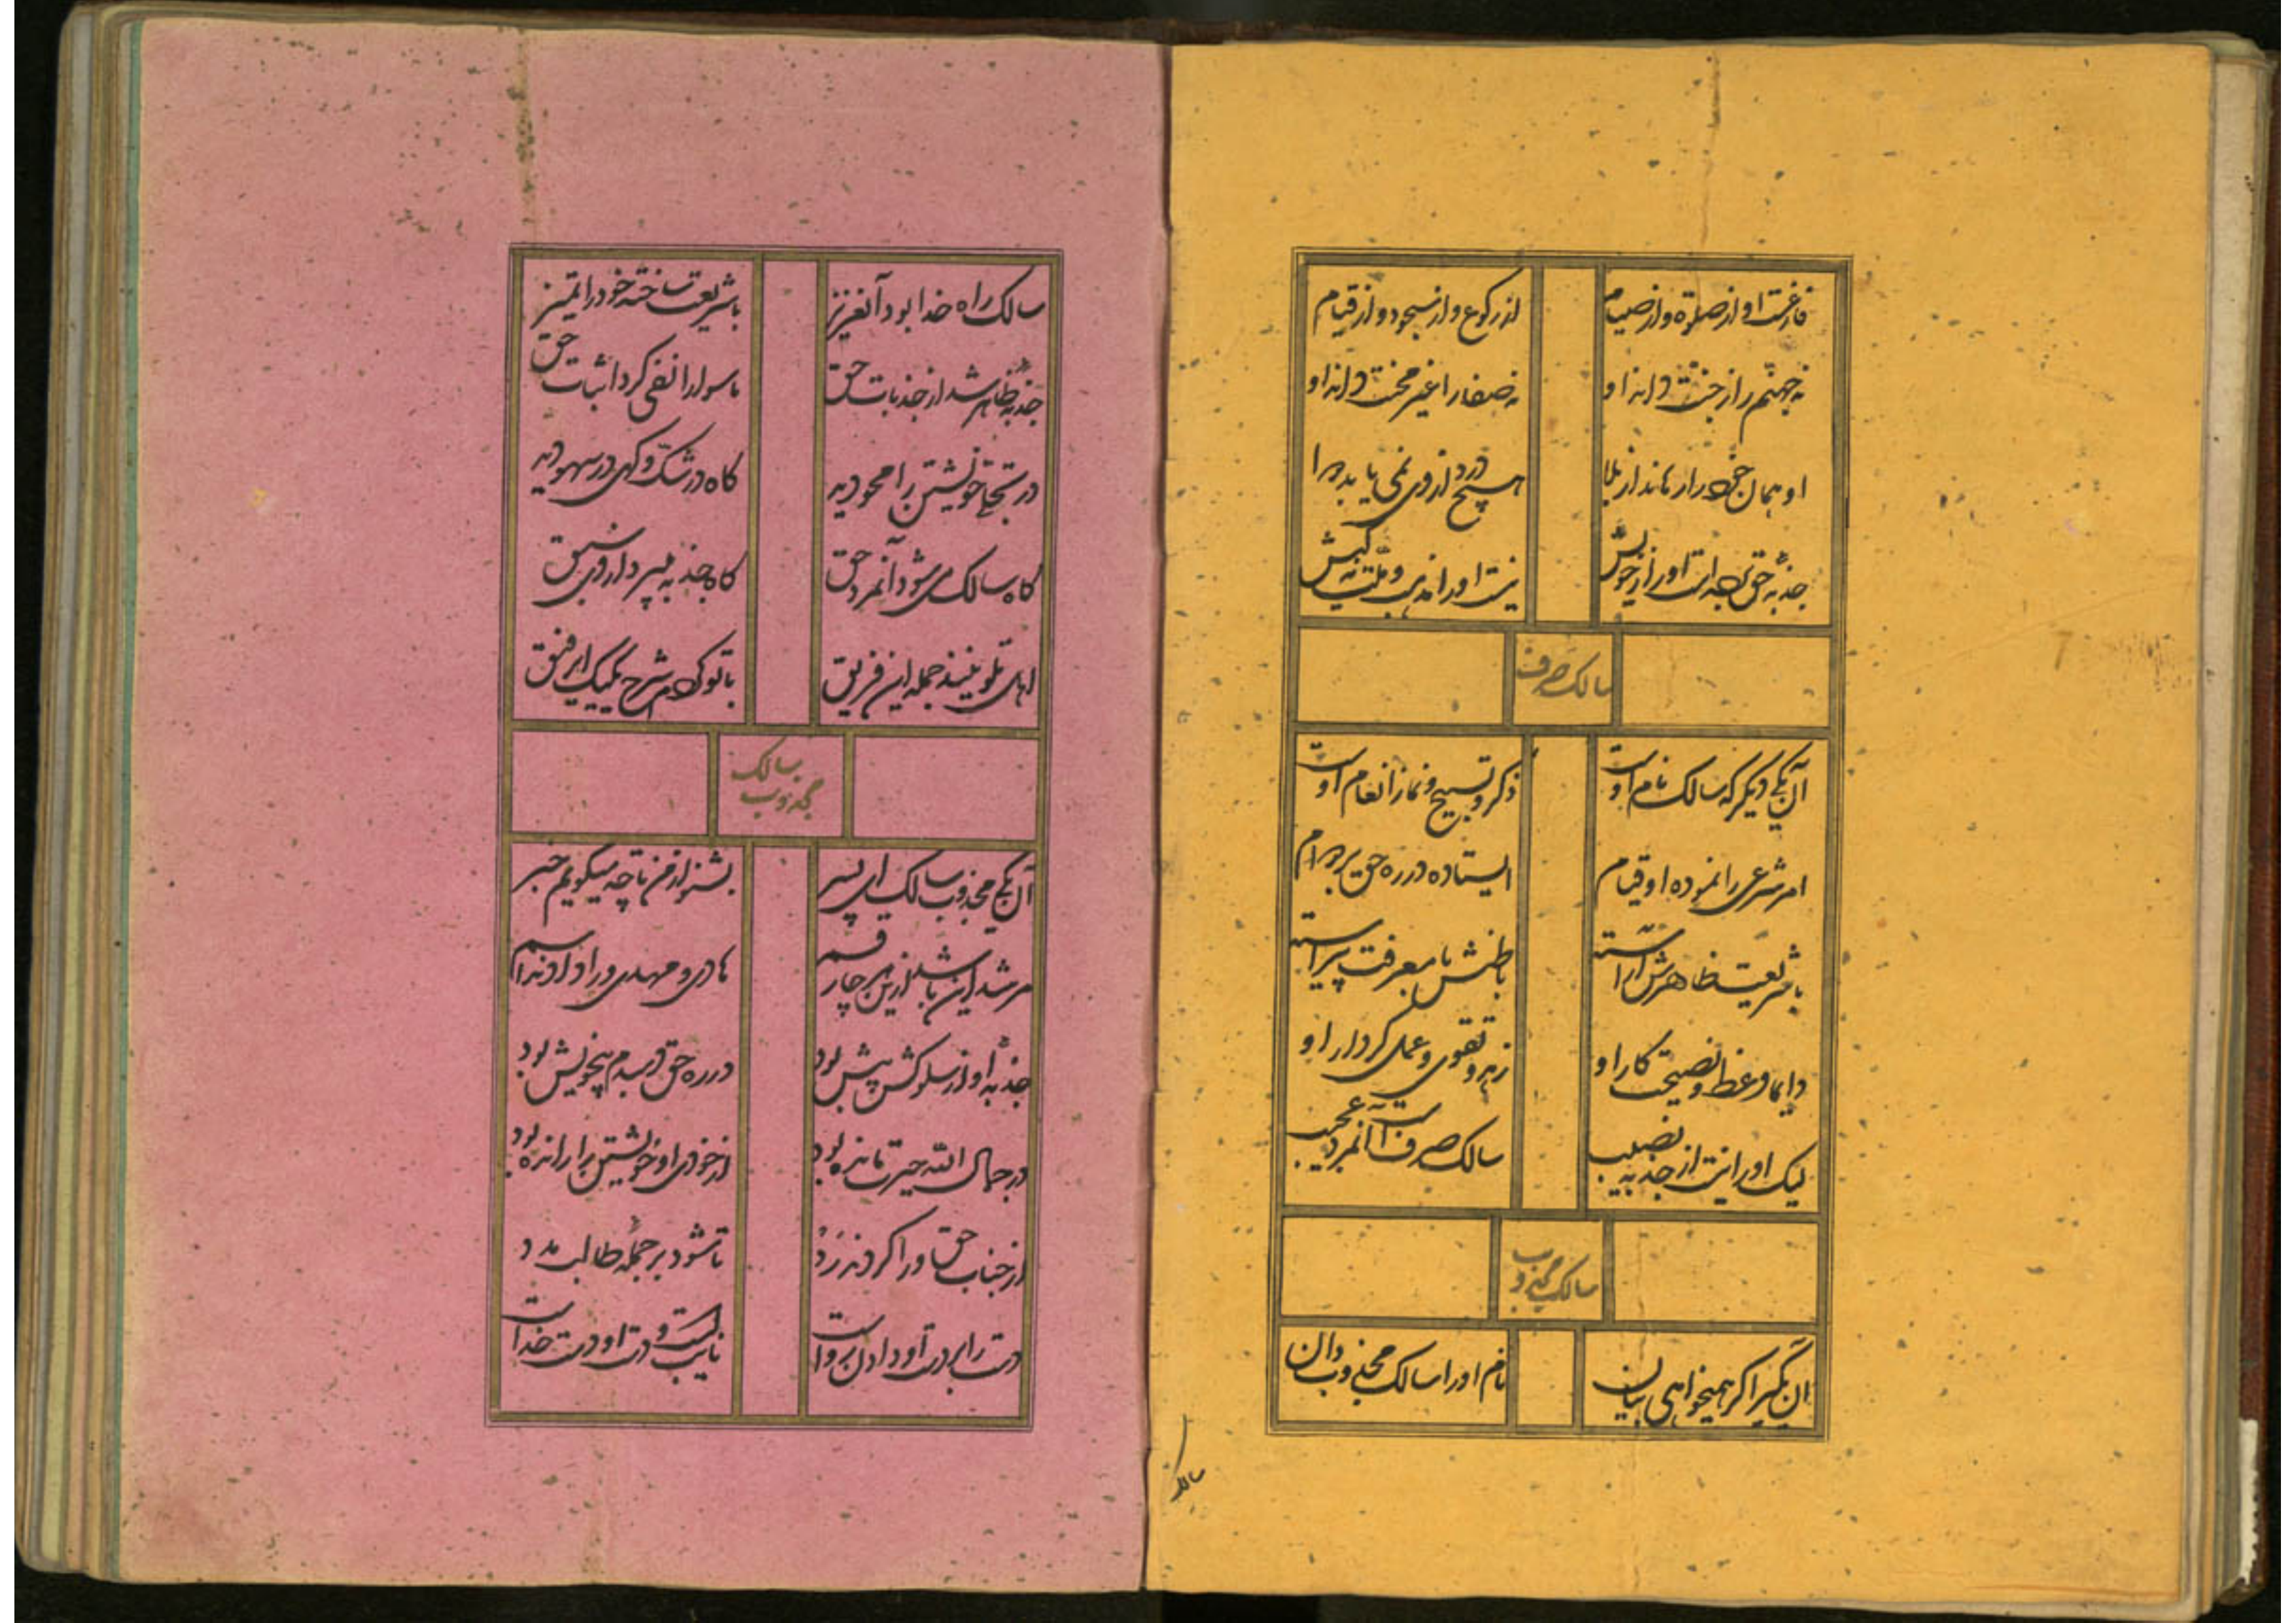 فارغست او از صلوة و از صیام
از رکوع و از سجود و از قیام
نه جهنم را ز جنت داند او
نه صفا را غیر محنت داند او
او همان حق را رهاند از بلا
هیچ دردی از وی نمی یابد
جذبه حق است او را ز خویش
نیست او را مذهب و ملت نه کیش
سالک صرف
آن یکی دیگر که سالک نام اوست
ذکر و تسبیح و نماز انعام اوست
امر شرعی را نموده او قیام
ایستاده در ره حق بر دوام
با شریعت ظاهرش آراسته
باطنش با معرفت پیراسته
دایما وعظ و نصیحت کار او
زهد و تقوی و عمل کردار او
لیک او را نیست از جذبه نصیب
سالک صرف است آنمرد عجیب
سالک مجذوب
آن یکی را گر همیخواهی بیان
نام او را سالک مجذوب دان
سالک
سالک راه خدا بود آنعزیز
با شریعت ساخته خود را تمیز
جذبه ظاهر شد از جذبات حق
ماسوا را نفی کرد اثبات حق
در تجلی خویشتن را محو دید
گاه در شک و گهی در سهو دید
گاه سالک می شود آنمرد حق
گاه جذبه میبرد از وی سبق
اهل تلوینند جمله این فریق
با تو کردم شرح یک یک ای رفیق
سالک مجذوب
آن یکی مجذوب سالک ای پسر
بشنو از من تا چه میگویم خبر
مرشد این باشد ازین هر چار قسم
هادی و مهدی ورا دادند اسم
جذبه او از سلوکش پیش بود
در ره حق دمبدم بیخویش بود
در جمال الله حیرت مانده بود
از خودی او خویشتن را رانده بود
از جناب حق ورا کردند رد
تا شود بر جمله طالب مدد
دست را بر دست او دادن رواست
نایب است و دست او دست خداست